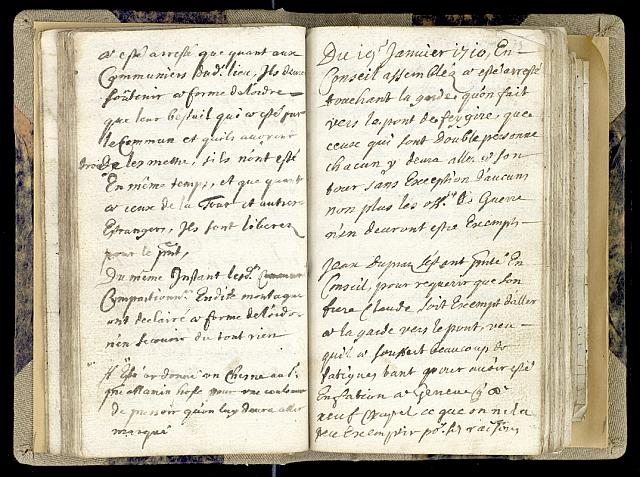 a esté arresté que quant aux
Communiers dud. lieu, Ils
soutenir a forme de lordre
que leur bestail qui a esté sur
le Commun et quils auront
droit de les mettre, sils nont esté
En même temps, et que quant
a ceux de la Tour et autres
Estrangers, Ils sont liberez
pour le pnt,
Du même Instant les
Compartionn. En dite montagne
ont declairé a forme de lordre
nen scavoir du tout rien
Il Est ordonné un Chesne au
hoste pour une
de pressoir quon luy devra aller
marqué
Du 19e Janvier 1710, En
Conseil assemblez a esté arresté
touchant la garde quon fait
vers le pont de feygire, que
ceux qui sont double personne
chacun y devra aller a son
tour sans Exception daucuns
non plus les off. de Guerre
nen devront estre Exempts
Jean Dupraz sestant pnté En
Conseil, pour requerir que son
frere Claude soit Exempt daller
a la garde vers le pont, veu
quil a souffert beaucoup de
fatigues tant pour avoir esté
En station a Geneve
neuf ce que on ne la
peu Exemptir po. ses raisons